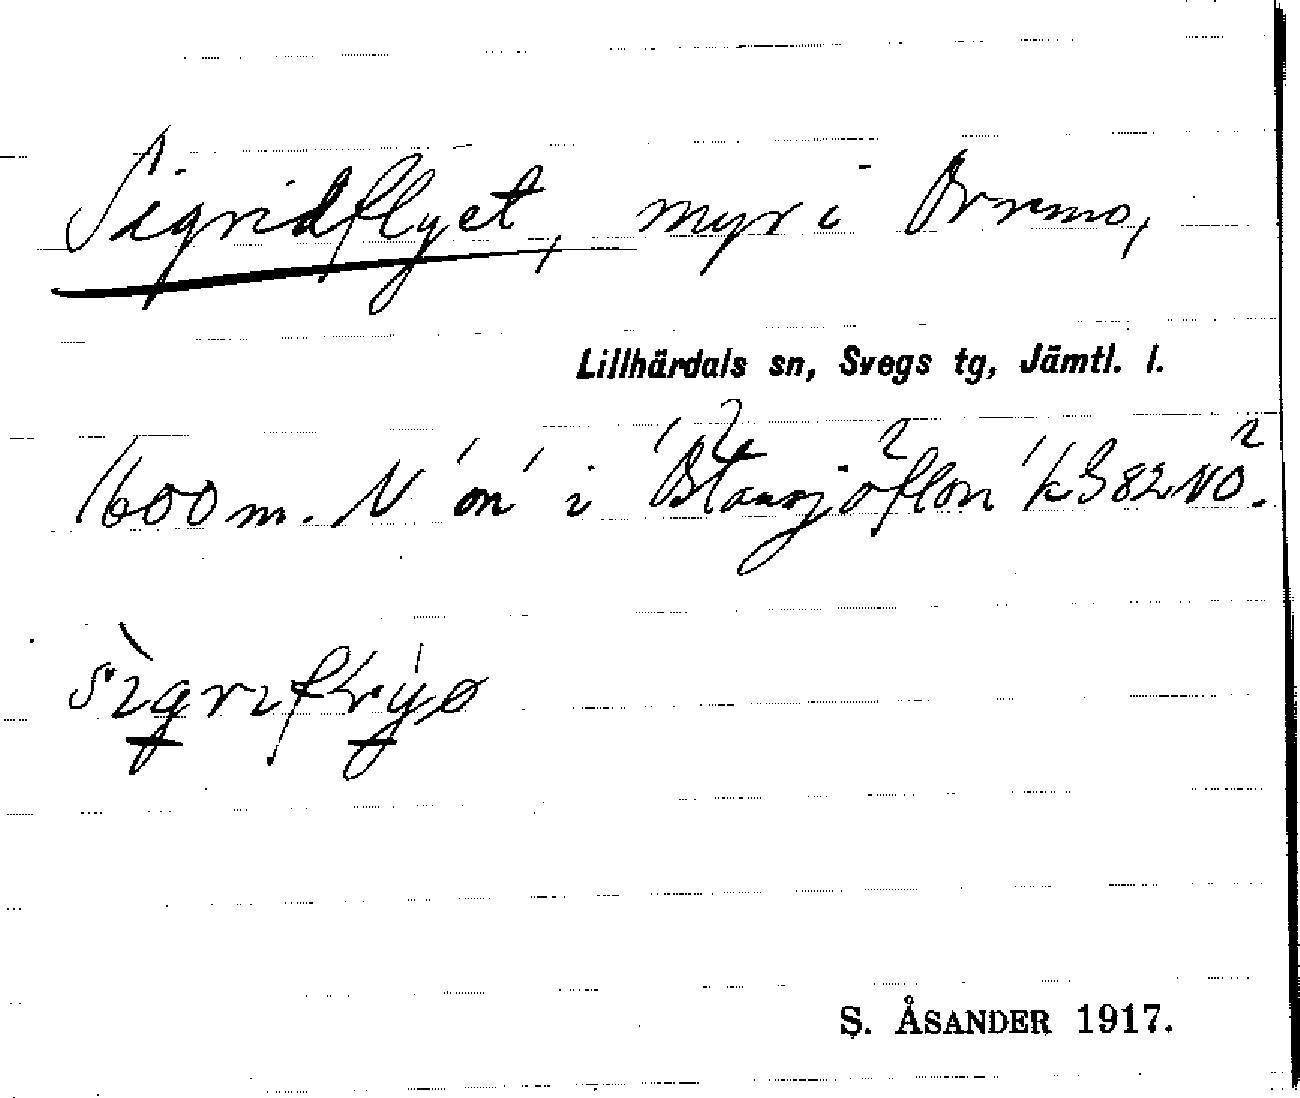 Sigridflyet, myr i Orrmo,
Lillhärdals sn, Svegs tg, Jämtl. l.
1600 m. N 'on' i 'Blåsjöflon' k382NO.
S. ÅSANDER 1917.